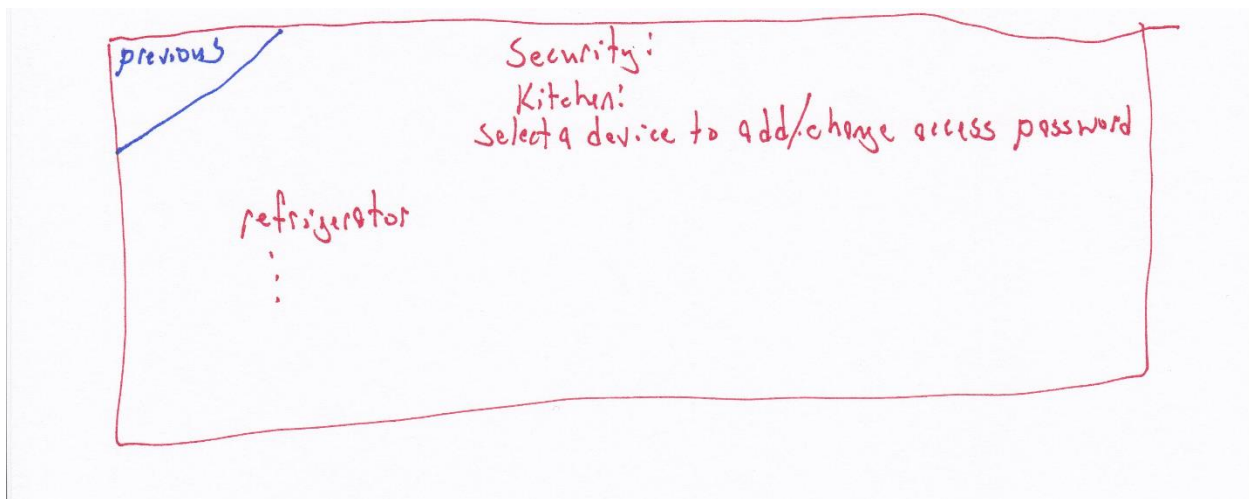 previous
Security:
Kitchen:
Select a device to add/change access password
refrigerator